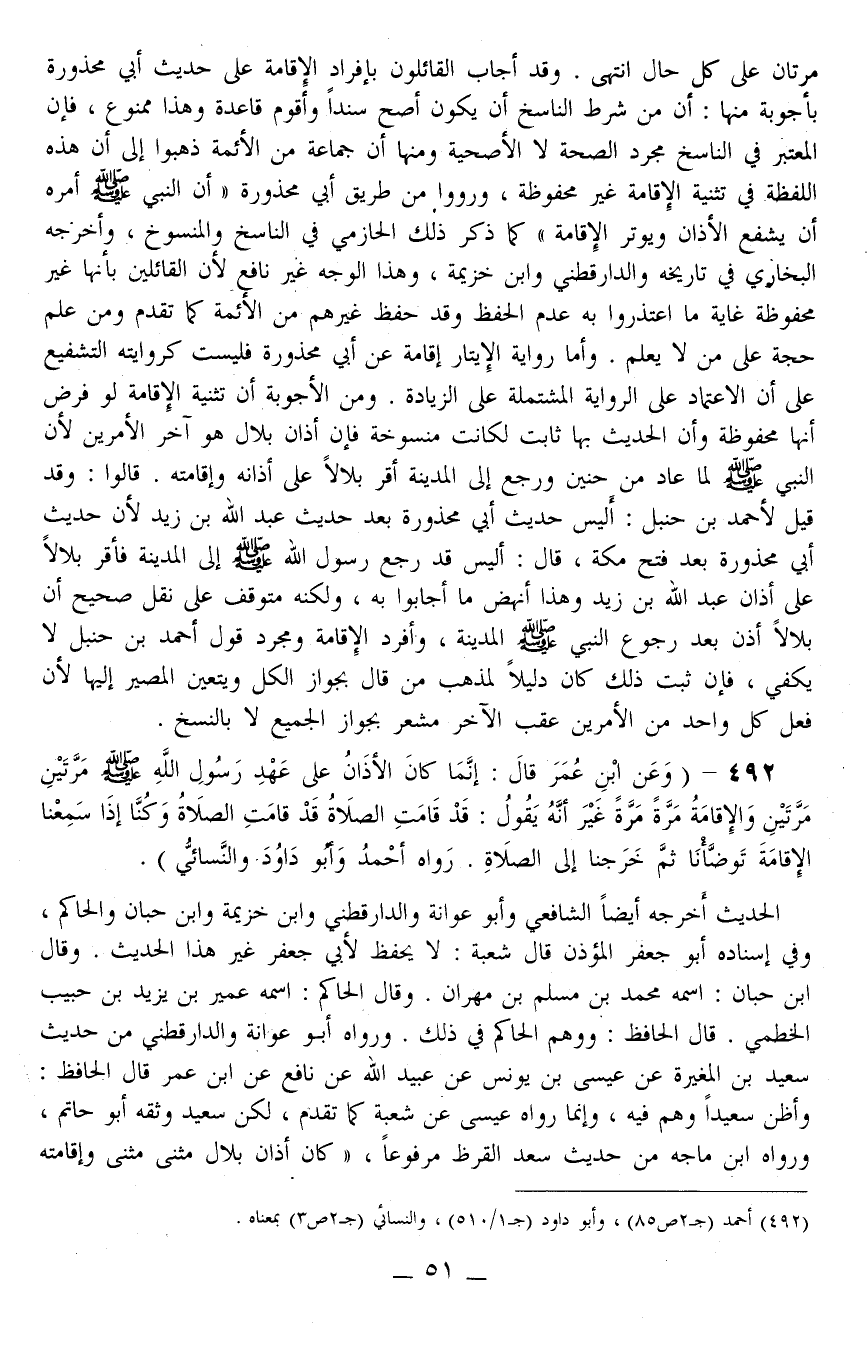 مرتان على كل حال انتهى . وقد أجاب القائلون بإفراد الإقامة على حديث أبي محذورة
بأجوبة منها : أن من شرط الناسخ أن يكون أصح سنداً وأقوم قاعدة وهذا ممنوع ، فإن
المعتبر في الناسخ مجرد الصحة لا الأصحية ومنها أن جماعة من الأئمة ذهبوا إلى أن هذه
اللفظة في تثنية الإقامة غير محفوظة ، ورووا من طريق أبي محذورة « أن النبي ﷺ أمره
أن يشفع الأذان ويوتر الإقامة » كما ذكر ذلك الحازمي في الناسخ والمنسوخ ، وأخرجه
البخاري في تاريخه والدارقطني وابن خزيمة ، وهذا الوجه غير نافع لأن القائلين بأنها غير
محفوظة غاية ما اعتذروا به عدم الحفظ وقد حفظ غيرهم من الأئمة كما تقدم ومن علم
حجة على من لا يعلم . وأما رواية الإيتار إقامة عن أبي محذورة فليست كروايته التشفيع
على أن الاعتماد على الرواية المشتملة على الزيادة . ومن الأجوبة أن تثنية الإقامة لو فرض
أنها محفوظة وأن الحديث بها ثابت لكانت منسوخة فإن أذان بلال هو آخر الأمرين لأن
النبي ﷺ لما عاد من حنين ورجع إلى المدينة أقر بلالاً على أذانه وإقامته . قالوا : وقد
قيل لأحمد بن حنبل : أَليس حديث أبي محذورة بعد حديث عبد الله بن زيد لأن حديث
أبي محذورة بعد فتح مكة ، قال : أليس قد رجع رسول الله ﷺ إلى المدينة فأقر بلالاً
على أذان عبد الله بن زيد وهذا أنهض ما أجابوا به ، ولكنه متوقف على نقل صحيح أن
بلالاً أذن بعد رجوع النبي ﷺ المدينة ، وأفرد الإقامة ومجرد قول أحمد بن حنبل لا
يكفي ، فإن ثبت ذلك كان دليلاً لمذهب من قال بجواز الكل ويتعين المصير إليها لأن
فعل كل واحد من الأمرين عقب الآخر مشعر بجواز الجميع لا بالنسخ .
٤٩٢ - ( وَعَن ابْنِ عُمَرَ قالَ : إنَّمَا كانَ الأذَانُ على عَهْدِ رَسُولِ اللَّهِ ﷺ مَرَّتَيْنِ
مَرَّتَيْنِ وَالإقامَةُ مَرَّةً مَرَّةً غَيْرَ أنَّهُ يَقُولُ : قَدْ قَامَتِ الصلاةُ قَدْ قامَتِ الصلاةُ وَكُنَّا إذَا سَمِعْنا
الإقامَةَ تَوضَّأْنَا ثمَّ خَرَجنا إلى الصلَاةِ . رَواه أحْمدُ وَأبُو دَاوُدَ والنَّسائيُّ ) .
الحديث أَخرجه أيضاً الشافعي وأبو عوانة والدارقطني وابن خزيمة وابن حبان والحاكم ،
وفي إسناده أبو جعفر المؤذن قال شعبة : لا يحفظ لأبي جعفر غير هذا الحديث . وقال
ابن حبان : اسمه محمد بن مسلم بن مهران . وقال الحاكم : اسمه عمير بن يزيد بن حبيب
الخطمي . قال الحافظ : ووهم الحاكم في ذلك . ورواه أبو عوانة والدارقطني من حديث
سعيد بن المغيرة عن عيسى بن يونس عن عبيد الله عن نافع عن ابن عمر قال الحافظ :
وأظن سعيداً وهم فيه ، وإنما رواه عيسى عن شعبة كما تقدم ، لكن سعيد وثقه أبو حاتم ،
ورواه ابن ماجه من حديث سعد القرظ مرفوعاً ، « كان أذان بلال مثنى مثنى وإقامته
(٤٩٢) أحمد (جـ٢ص٨٥) ، وأبو داود (جـ٥١٠/١) ، والنسائي (جـ٢ص٣) بمعناه .
— ٥١ —